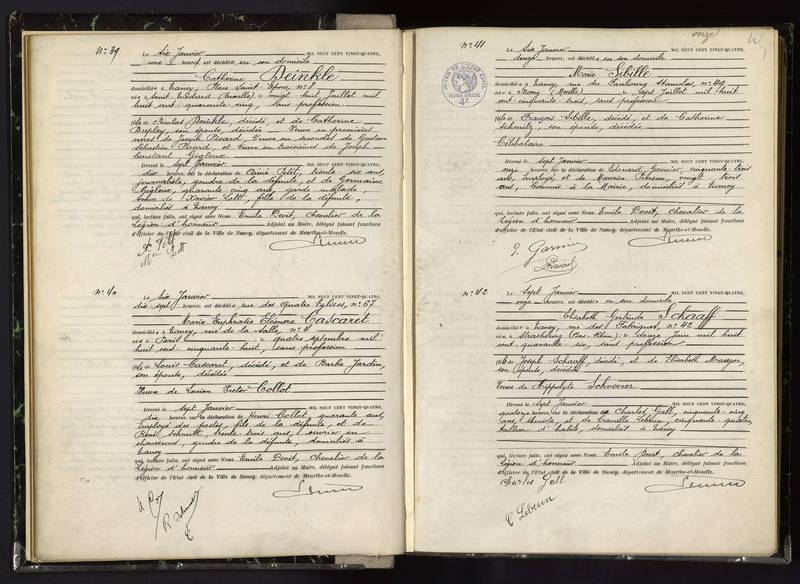 N° 39
Le Six Janvier MIL NEUF CENT VINGT-QUATRE,
une heure, est décédée en son domicile
Catherine Deinkle
domiciliée à Nancy, Place Saint Epvre, n° 8
née à (Moselle) le vingt huit Juillet mil
huit cent quarante cinq, sans profession
fille de Nicolas Deinkle, décédé, et de Catherine
son épouse, décédée — Veuve en premières
noces de Joseph Picard, Veuve en secondes de
Sébastien Picard, et Veuve en troisièmes de Joseph
Constant Gigleux
Dressé le Sept Janvier MIL NEUF CENT VINGT-QUATRE,
dix heures, sur la déclaration de Aimé Petit, trente six ans,
journaliste, gendre de la défunte, et de Germaine
Gigleux, quarante cinq ans, garde malade
de Xavier Lott, fille de la défunte,
domiciliés à Nancy
qui, lecture faite, ont signé avec Nous Emile Devit, Chevalier de la
Légion d'honneur Adjoint au Maire, délégué faisant fonctions
d'officier de l'Etat civil de la Ville de Nancy, département de Meurthe-et-Moselle.
N° 40
Le Six Janvier MIL NEUF CENT VINGT-QUATRE,
dix sept heures, est décédée rue des Quatre Eglises, n° 67
Marie Euphrasie Eléonore Cascaret
domiciliée à Nancy, rue de la Salle, n° 4
née à Paris le quatre Septembre mil
huit cent cinquante-huit, sans profession
fille de Louis Cascaret, décédé, et de Barbe Jardin,
son épouse, décédée
Veuve de Lucien Victor Collot
Dressé le Sept Janvier MIL NEUF CENT VINGT-QUATRE,
dix heures, sur la déclaration de Henri Collot, quarante ans,
Employé des postes, fils de la défunte, et de
René Schmitt, trente trois ans, ouvrier en
chaussures, gendre de la défunte, domiciliés à
Nancy
qui, lecture faite, ont signé avec Nous Emile Devit, Chevalier de la
Légion d'honneur Adjoint au Maire, délégué faisant fonctions
d'officier de l'Etat civil de la Ville de Nancy, département de Meurthe-et-Moselle.
onze
N° 41
Le Six Janvier MIL NEUF CENT VINGT-QUATRE,
douze heures, est décédée en son domicile
Marie Sibille
domiciliée à Nancy, rue du Faubourg Stanislas, n° 49
née à (Moselle) le Sept Juillet mil huit
cent cinquante trois, sans profession
fille de François Sibille, décédé, et de Catherine
Schmitz, son épouse, décédée
Célibataire
Dressé le Sept Janvier MIL NEUF CENT VINGT-QUATRE,
onze heures, sur la déclaration de Edouard Garnier, cinquante trois
ans, Employé, et de Maurice vingt trois
ans, Commis à la Mairie, domiciliés à Nancy
qui, lecture faite, ont signé avec Nous Emile Devit, Chevalier de la
Légion d'honneur Adjoint au Maire, délégué faisant fonctions
d'officier de l'Etat civil de la Ville de Nancy, département de Meurthe-et-Moselle.
N° 42
Le Sept Janvier MIL NEUF CENT VINGT-QUATRE,
onze heures, est décédée en son domicile
Elisabeth Gertrude Schaaff
domiciliée à Nancy, rue des Fabriques, n° 42
née à Strasbourg (Bas-Rhin) le Juin mil huit
cent quarante six, sans profession
fille de Joseph Schaaff, décédé, et de Elisabeth
son épouse, décédée
Veuve de Hippolyte Schoerer
Dressé le Sept Janvier MIL NEUF CENT VINGT-QUATRE,
quatorze heures, sur la déclaration de Charles Gall, cinquante cinq
ans, et de Camille Lebrun, cinquante quatre,
tailleur d'habits, domiciliés à Nancy
qui, lecture faite, ont signé avec Nous Emile Devit, Chevalier de la
Légion d'honneur Adjoint au Maire, délégué faisant fonctions
d'officier de l'Etat civil de la Ville de Nancy, département de Meurthe-et-Moselle.
Charles Gall
C Lebrun